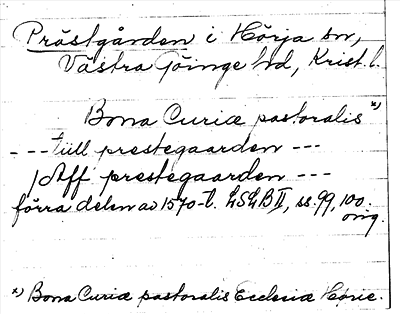 Prästgården i Hörja sn,
Västra Göinge hd, Krist. l.
Bona Curiæ pastoralis x)
--- till prestegaarden ---
/Aff prestegaarden ---
förra delen av 1570-t. LSLB II, ss. 99, 100.
orig.
x) Bona Curiæ pastoralis Ecclesiæ Hørie.